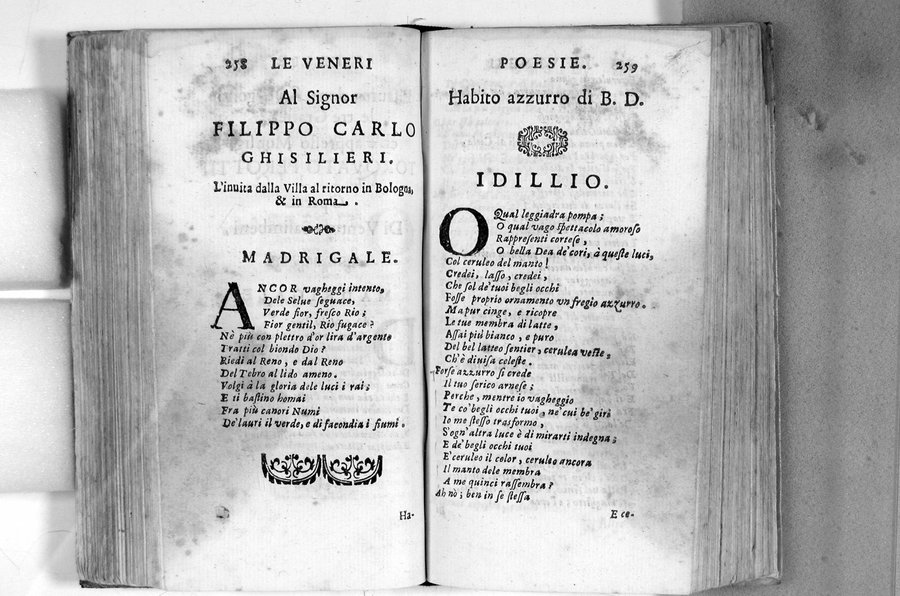 258 LE VENERI
Al Signor
FILIPPO CARLO
GHISILIERI.
L'inuita dalla Villa al ritorno in Bologna,
& in Roma.
MADRIGALE.
ANCOR vagheggi intento,
Dele Selue seguace,
Verde fior, fresco Rio;
Fior gentil, Rio fugace?
Nè più con plettro d'or lira d'argento
Tratti col biondo Dio?
Riedi al Reno, e dal Reno
Del Tebro al lido ameno.
Volgi à la gloria dele luci i rai;
E ti bastino homai
Fra più canori Numi
De'lauri il verde, e di facondia i fiumi.
Ha-
POESIE. 259
Habito azzurro di B. D.
IDILLIO.
O Qual leggiadra pompa;
O qual vago spettacolo amoroso
Rappresenti cortese,
O bella Dea de'cori, à queste luci,
Col ceruleo del manto!
Credei, lasso, credei,
Che sol de'tuoi begli occhi
Fosse proprio ornamento vn fregio azzurro.
Ma pur cinge, e ricopre
Le tue membra di latte,
Assai più bianco, e puro
Del bel latteo sentier, cerulea veste,
Ch'è diuisa celeste.
Forse azzurro si crede
Il tuo serico arnese;
Perche, mentre io vagheggio
Te co'begli occhi tuoi, ne'cui be'giri
Io me stesso trasformo,
S'ogn'altra luce è di mirarti indegna;
E de'begli occhi tuoi
E'ceruleo il color, ceruleo ancora
Il manto dele membra
A me quinci rassembra?
Ah nò; ben in se stessa
E ce-